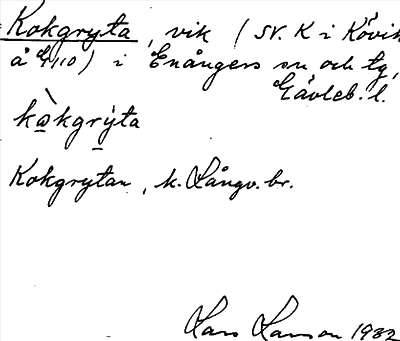 Kokgryta, vik (SV. K i Kövik
å G110) i Enångers sn och tg,
Gävleb. l.
kòkgryta
Kokgrytan, k. Långv. br.
Lars Larson 1982